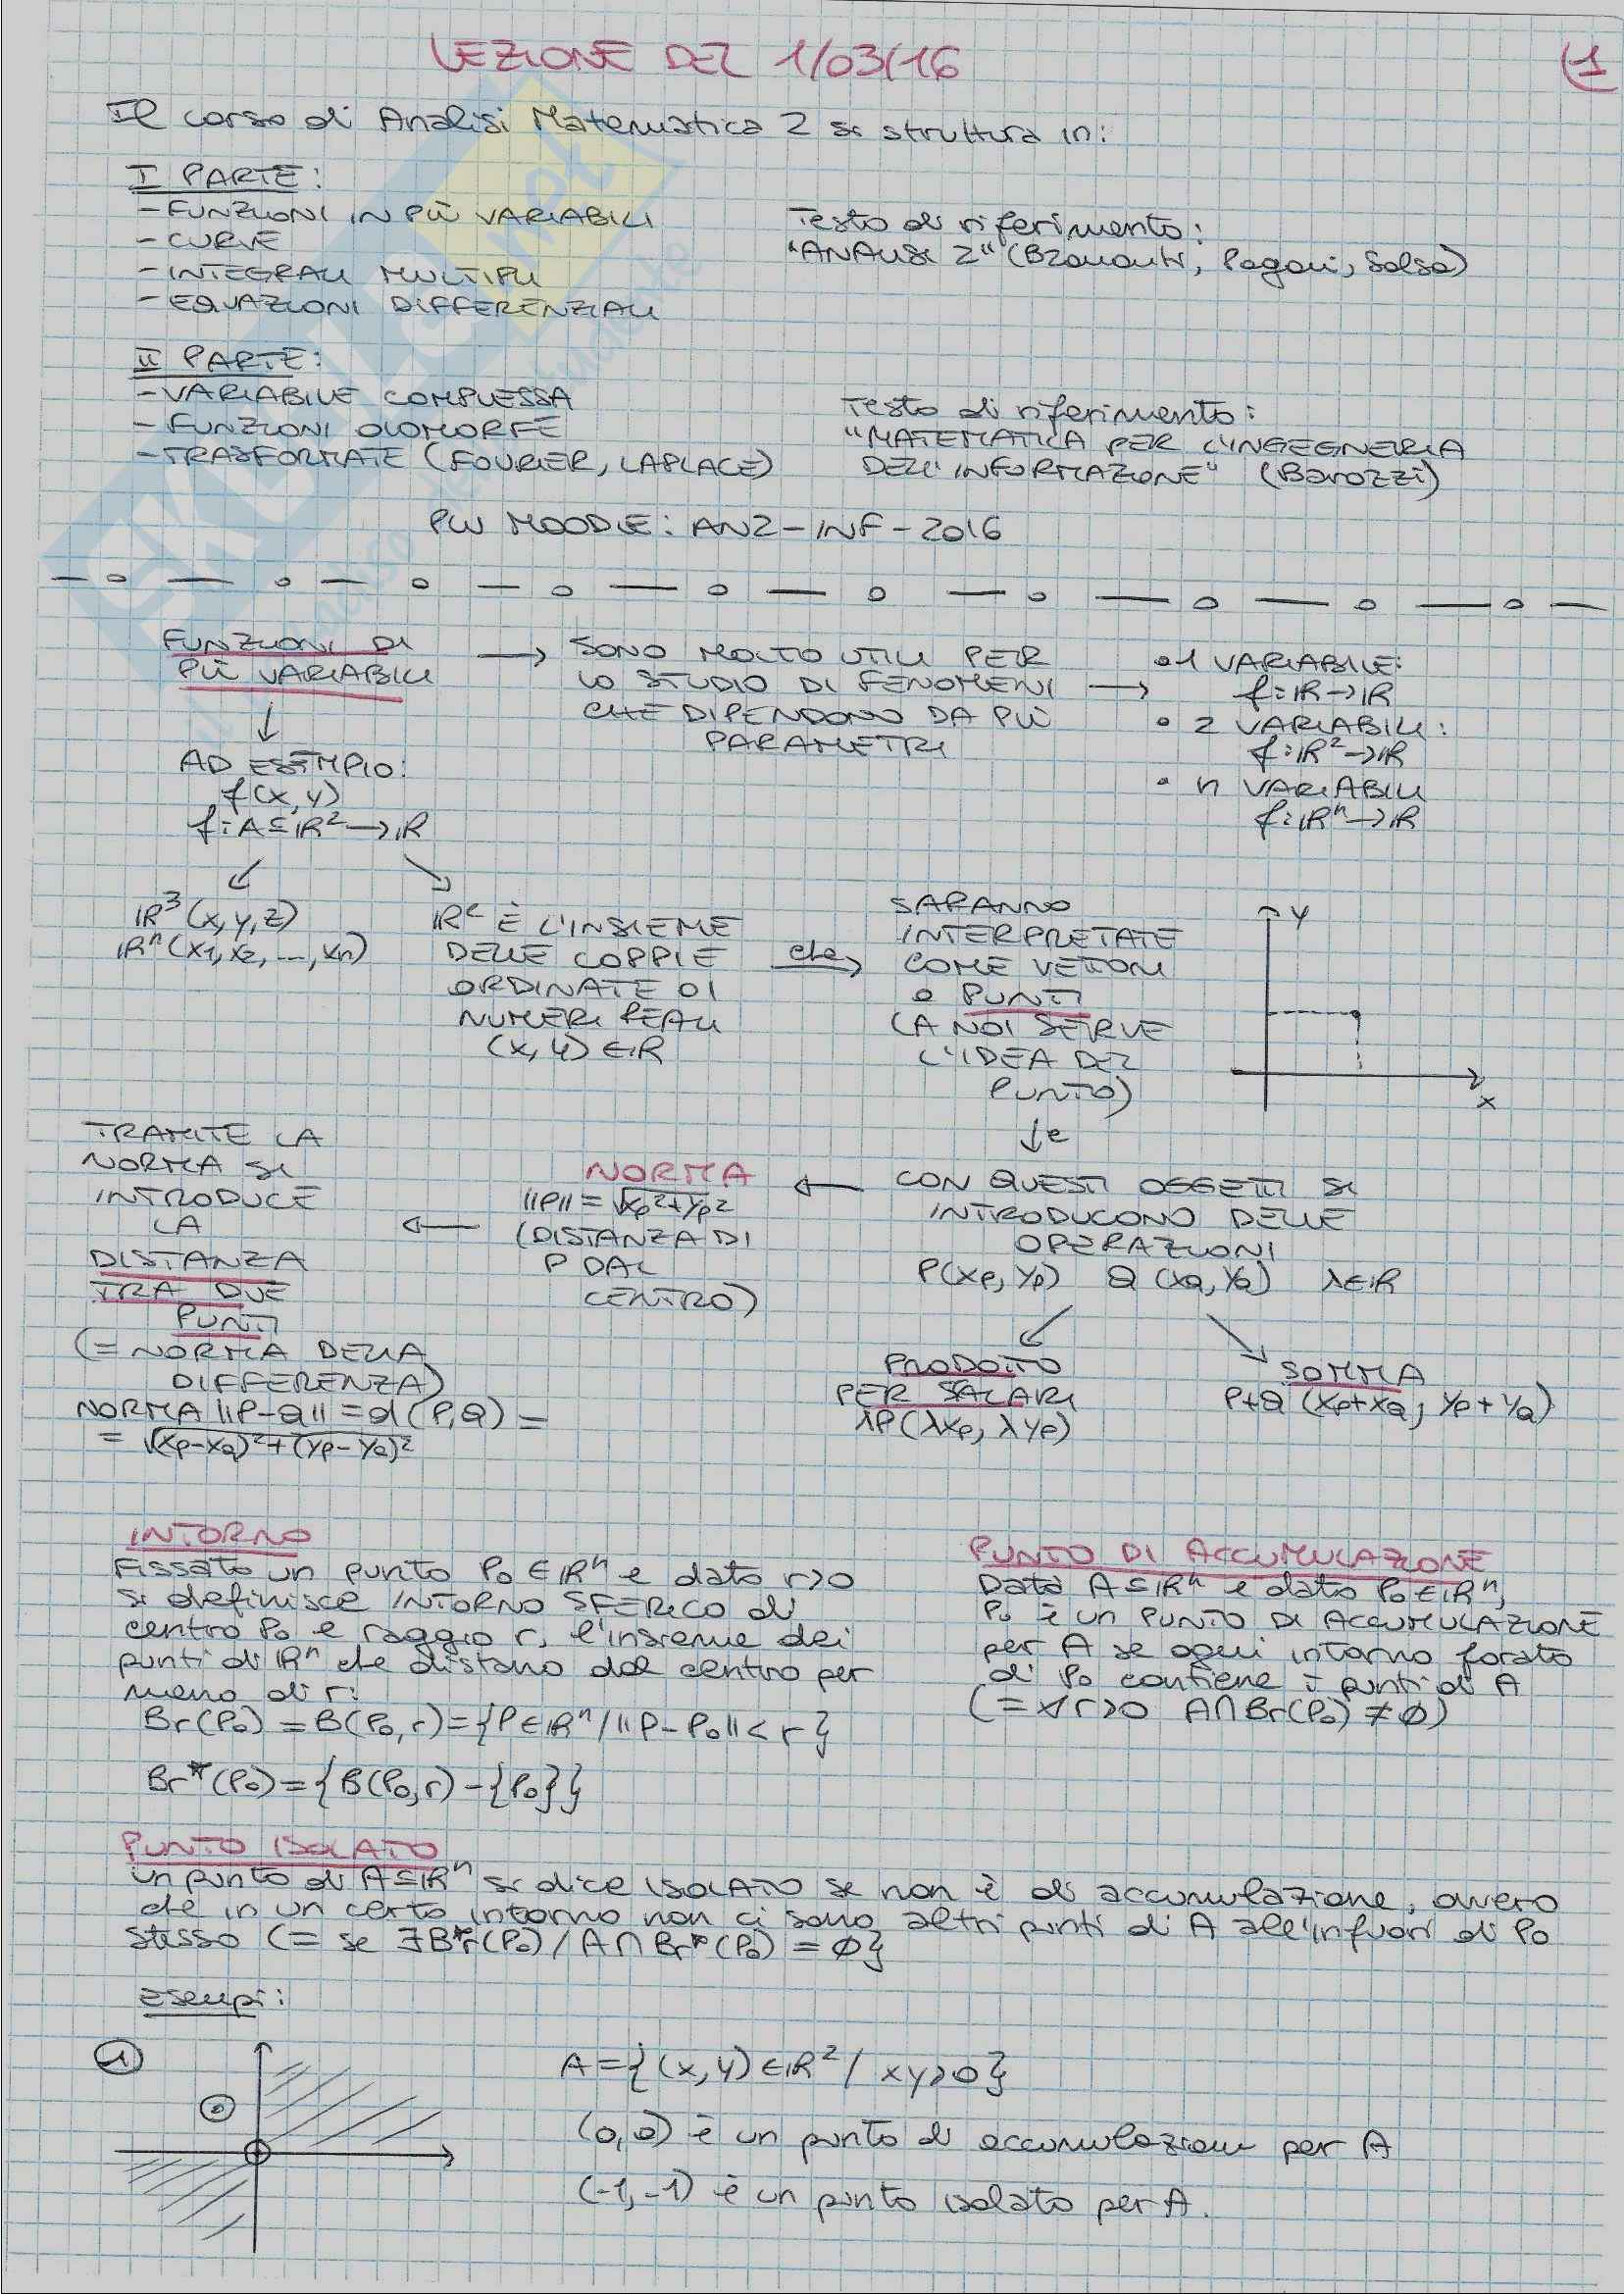 LEZIONE DEL 1/03/16
(1
Il corso di Analisi Matematica 2 si struttura in:
I PARTE:
- FUNZIONI IN PIÙ VARIABILI
- CURVE
- INTEGRALI MULTIPLI
- EQUAZIONI DIFFERENZIALI
Testo di riferimento:
"ANALISI 2" (Bramanti, Pagani, Salsa)
II PARTE:
- VARIABILE COMPLESSA
- FUNZIONI OLOMORFE
- TRASFORMATE (FOURIER, LAPLACE)
Testo di riferimento:
"MATEMATICA PER L'INGEGNERIA
DELL'INFORMAZIONE" (Barozzi)
PW MOODLE: AN2-INF-2016
FUNZIONI DI
PIÙ VARIABILI
→ SONO MOLTO UTILI PER
LO STUDIO DI FENOMENI
CHE DIPENDONO DA PIÙ
PARAMETRI
→ • 1 VARIABILE:
f: ℝ→ℝ
• 2 VARIABILI:
f: ℝ²→ℝ
• n VARIABILI
f: ℝⁿ→ℝ
↓
AD ESEMPIO:
f(x,y)
f: A⊆ℝ²→ℝ
ℝ³(x,y,z)
ℝⁿ(x1, x2, ..., xn)
ℝ² È L'INSIEME
DELLE COPPIE
ORDINATE DI
NUMERI REALI
(x, y) ∈ ℝ
che →
SARANNO
INTERPRETATE
COME VETTORI
O PUNTI
(A NOI SERVE
L'IDEA DEL
PUNTO)
y
x
↓ e
CON QUESTI OGGETTI SI
INTRODUCONO DELLE
OPERAZIONI
P(xp, yp) Q(xQ, yQ) λ∈ℝ
PRODOTTO
PER SCALARI
λP(λxp, λyp)
SOMMA
P+Q (xp+xQ; yp+yQ)
←
NORMA
||P|| = √xp²+yp²
(DISTANZA DI
P DAL
CENTRO)
←
TRAMITE LA
NORMA SI
INTRODUCE
LA
DISTANZA
TRA DUE
PUNTI
(= NORMA DELLA
DIFFERENZA)
NORMA ||P-Q|| = d(P,Q) =
= √(xp-xQ)²+(yp-yQ)²
INTORNO
Fissato un punto P0 ∈ ℝⁿ e dato r>0
si definisce INTORNO SFERICO di
centro P0 e raggio r, l'insieme dei
punti di ℝⁿ che distano dal centro per
meno di r:
Br(P0) = B(P0, r) = {P∈ℝⁿ / ||P-P0|| < r}
Br*(P0) = {B(P0, r) - {P0}}
PUNTO DI ACCUMULAZIONE
Dato A⊆ℝⁿ e dato P0∈ℝⁿ,
P0 è un PUNTO DI ACCUMULAZIONE
per A se ogni intorno forato
di P0 contiene i punti di A
(= ∀r>0 A∩Br(P0) ≠ ∅)
PUNTO ISOLATO
Un punto di A⊆ℝⁿ si dice ISOLATO se non è di accumulazione, ovvero
che in un certo intorno non ci sono altri punti di A all'infuori di P0
stesso (= se ∃Br*(P0) / A∩Br*(P0) = ∅}
esempi:
1)
A = {(x,y) ∈ℝ² / xy>0}
(0,0) è un punto di accumulazione per A
(-1,-1) è un punto isolato per A.